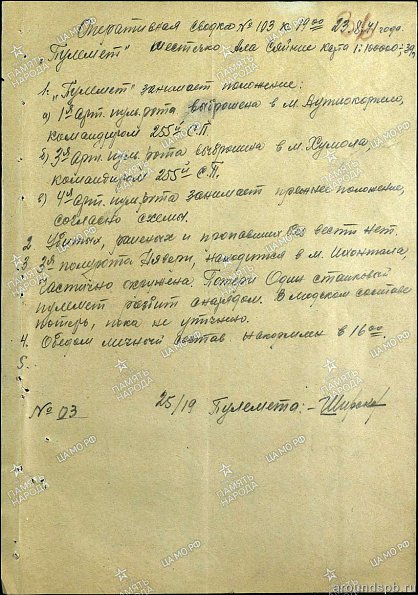 Оперативная сводка № 103 к 19 00 23.8.41 года.
"Пулемет" местечко Ала Сяйние карта 1:100000-39,
1. "Пулемет" занимает положение:
а) 1я Арт. пул. рота выброшена в м.
командиром 255й С.П.
б) 3я Арт. пул. рота выброшена в м. Хумола,
командиром 255й С.П.
в) 4я Арт. пул. рота занимает прежнее положение,
согласно схемы.
2. Убитых, раненых и пропавших без вести нет.
3. 3я полурота находится в м. Ихантала,
частично окружена. Потери Один станковой
пулемет разбит снарядом. В людском составе
потерь, пока не уточнено.
4. Обедом личный состав накормлен в 16 00
5.
№ 03 25/19 Пулемета:-
ПАМЯТЬ НАРОДА
ЦАМО.РФ
aroundspb.ru